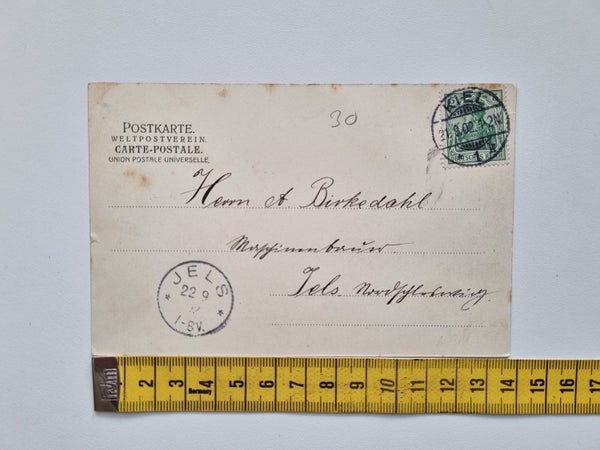 30
KIEL
21.9.02
1
POSTKARTE.
WELTPOSTVEREIN.
CARTE-POSTALE.
UNION POSTALE UNIVERSELLE.
Herrn A Birkedahl
Maschinenbauer.
Jels Nordschleswig.
JELS
22 9
1-8V.
1 2 3 4 5 6 7 8 9 10 11 12 13 14 15 16 17
Germany